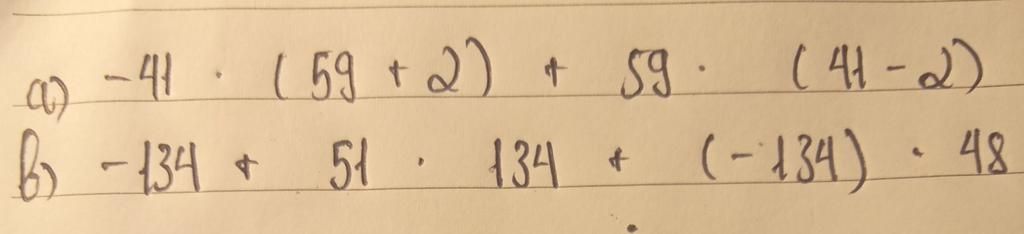 a) -41 · (59 + 2) + 59 · (41 - 2)
b) -134 + 51 · 134 + (-134) · 48